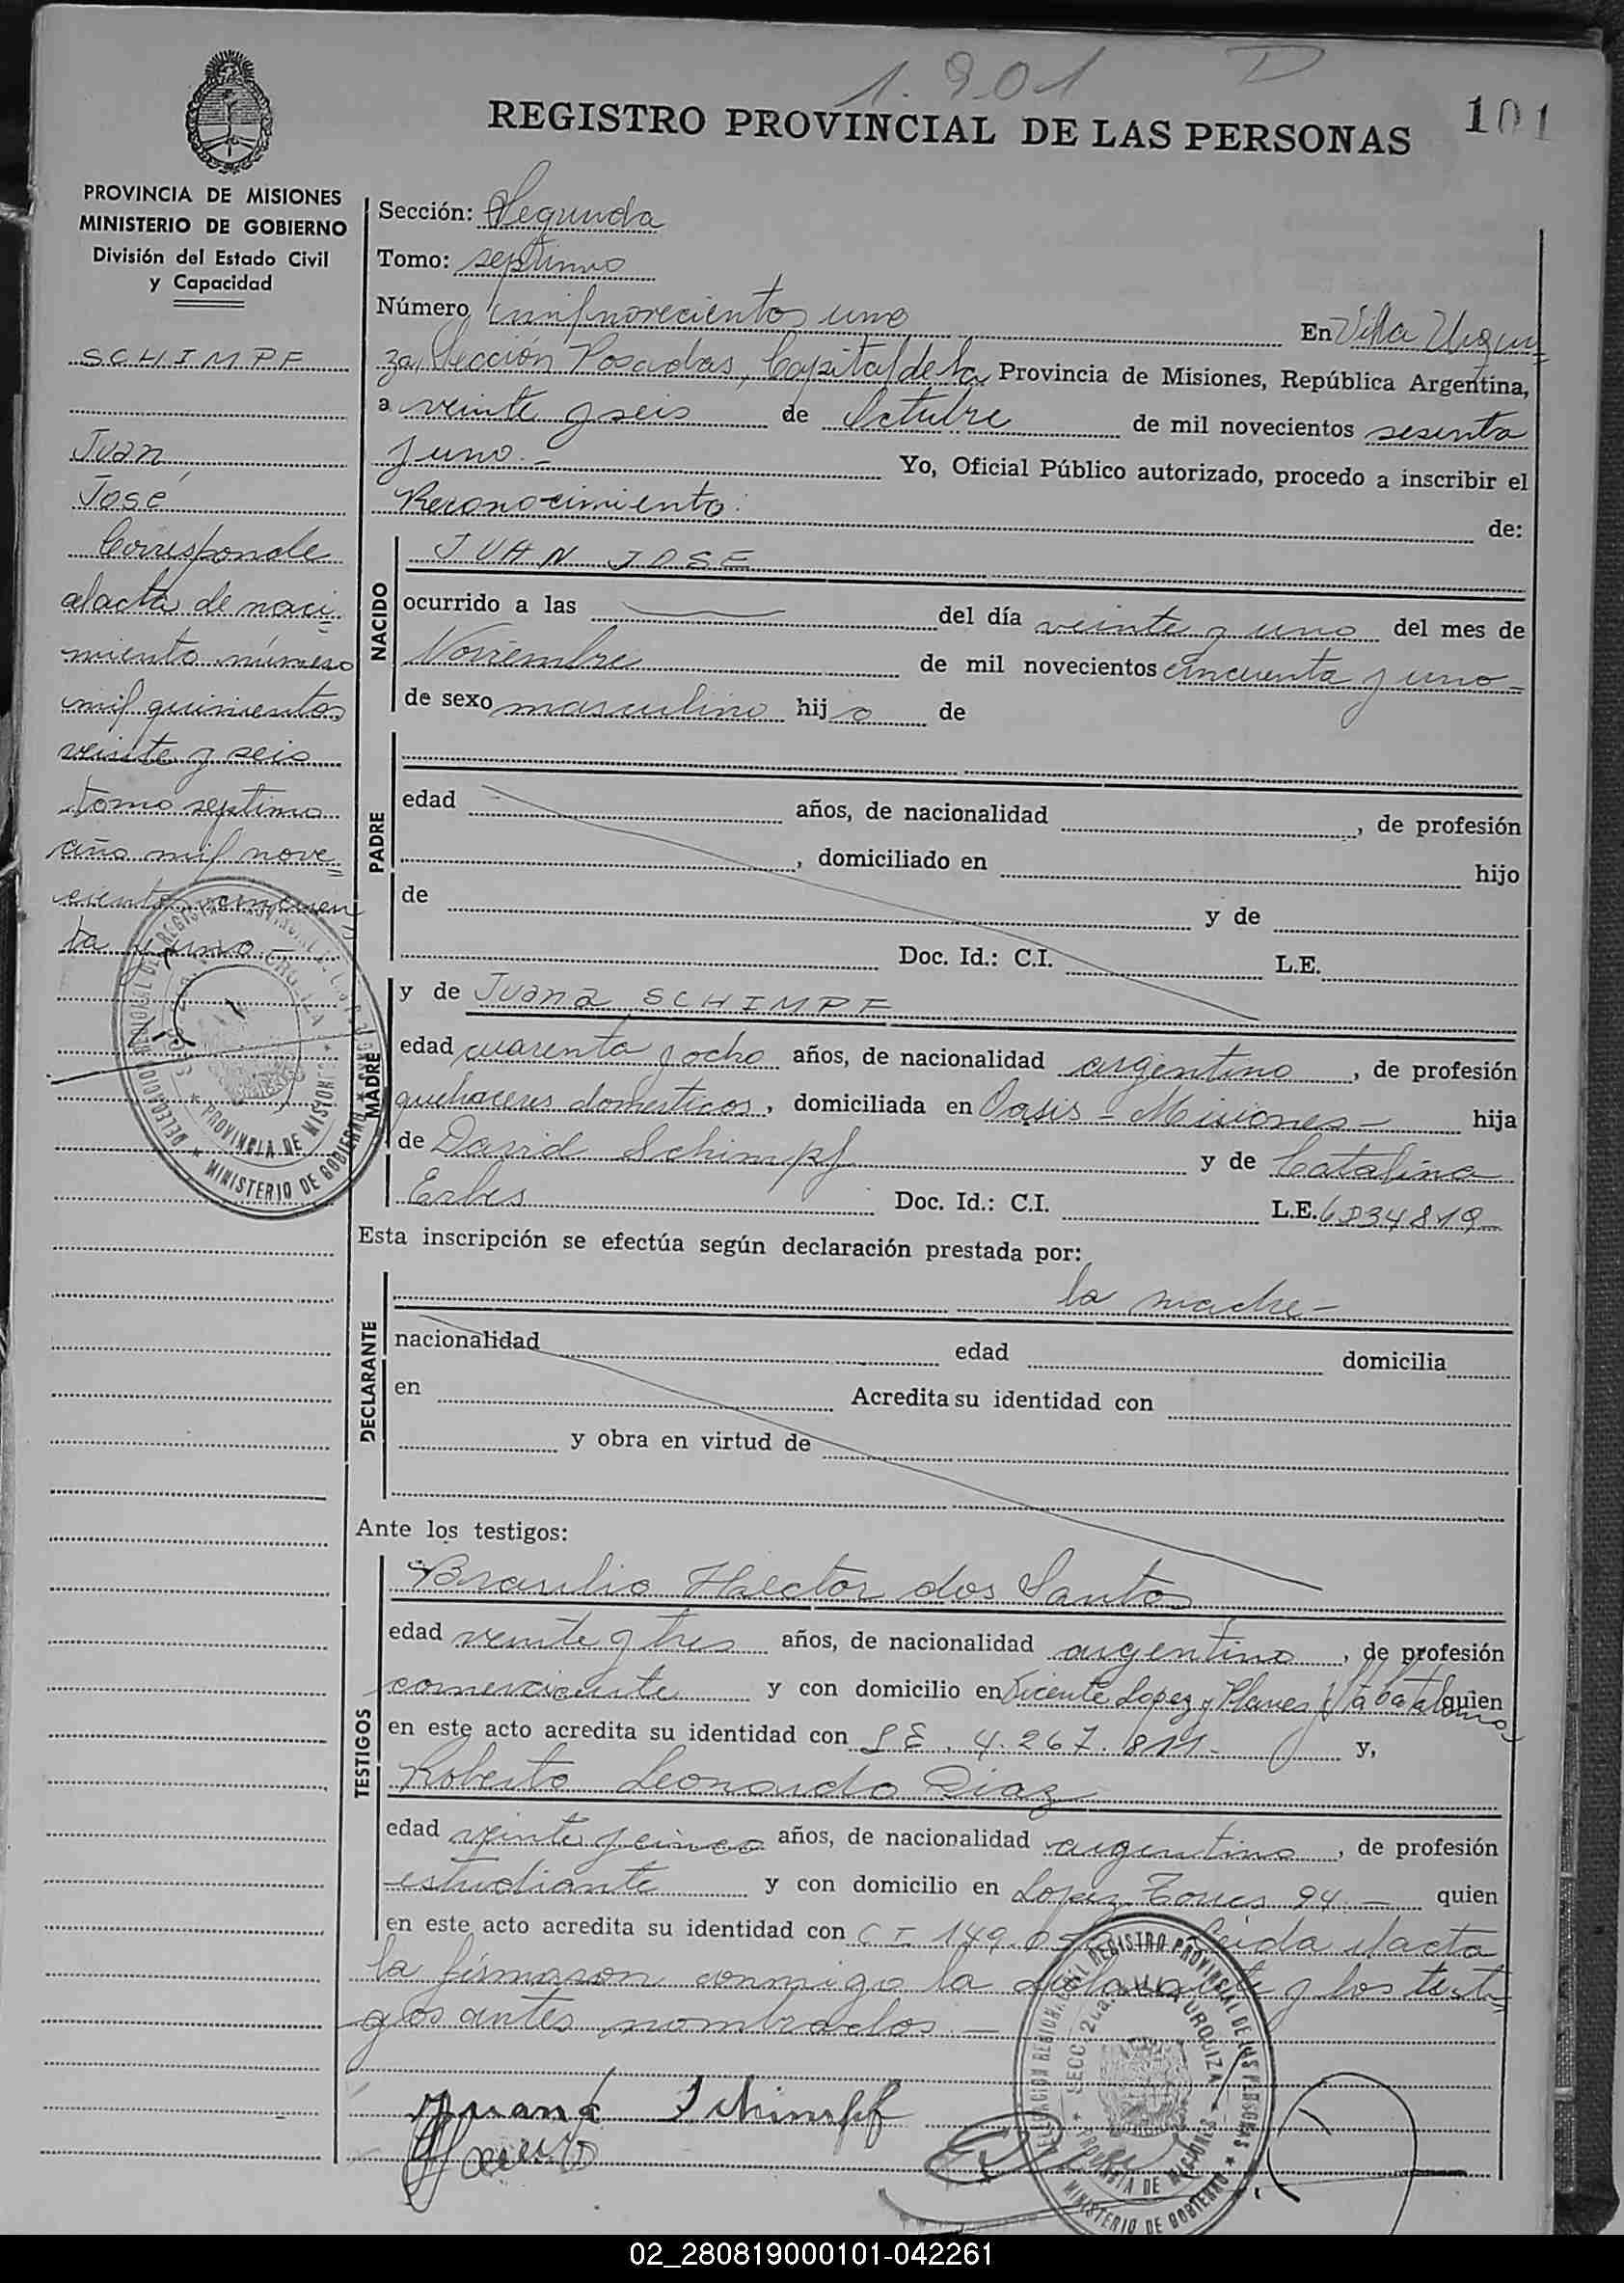 1.901 D
REGISTRO PROVINCIAL DE LAS PERSONAS 101
PROVINCIA DE MISIONES
MINISTERIO DE GOBIERNO
División del Estado Civil
y Capacidad
SCHIMPF
Juan
José
Corresponde
al acta de naci=
miento número
mil quinientos
veinte y seis
tomo septimo
año mil nove=
cientos cincuen=
ta y uno.-
Sección: Segunda
Tomo: septimo
Número mil novecientos uno En Villa Urqui=
za, Sección Posadas, Capital de la Provincia de Misiones, República Argentina,
a veinte y seis de Octubre de mil novecientos sesenta
y uno.- Yo, Oficial Público autorizado, procedo a inscribir el
Reconocimiento: de:
NACIDO
JUAN JOSE
ocurrido a las del día veinte y uno del mes de
Noviembre de mil novecientos cincuenta y uno=
de sexo masculino hijo de
PADRE
edad años, de nacionalidad , de profesión
, domiciliado en hijo
de y de
Doc. Id.: C.I. L.E.
MADRE
y de Juana SCHIMPF
edad cuarenta y ocho años, de nacionalidad argentino, de profesión
quehaceres domesticos, domiciliada en Oasis - Misiones - hija
de David Schimpf y de Catalina
Erbes Doc. Id.: C.I. L.E.
Esta inscripción se efectúa según declaración prestada por:
DECLARANTE
la madre-
nacionalidad edad domicilia
en Acredita su identidad con
y obra en virtud de
Ante los testigos:
TESTIGOS
Braulio Hector dos Santos
edad veinte y tres años, de nacionalidad argentino, de profesión
comerciante y con domicilio en Vicente Lopez y Planes quien
en este acto acredita su identidad con L E. 4.267.811- y,
Roberto Leonardo Diaz
edad veinte y cinco años, de nacionalidad argentino, de profesión
estudiante y con domicilio en Lopez Torres 94.- quien
en este acto acredita su identidad con C I 149. Leida el acta
la firmaron conmigo la declarante y los testi=
gos antes nombrados.-
Juana Schimpf
DELEGACION REGIONAL DEL REGISTRO PROVINCIAL DE LAS PERSONAS
SECC. 2da. VILLA URQUIZA
PROVINCIA DE MISIONES
MINISTERIO DE GOBIERNO
02_280819000101-042261